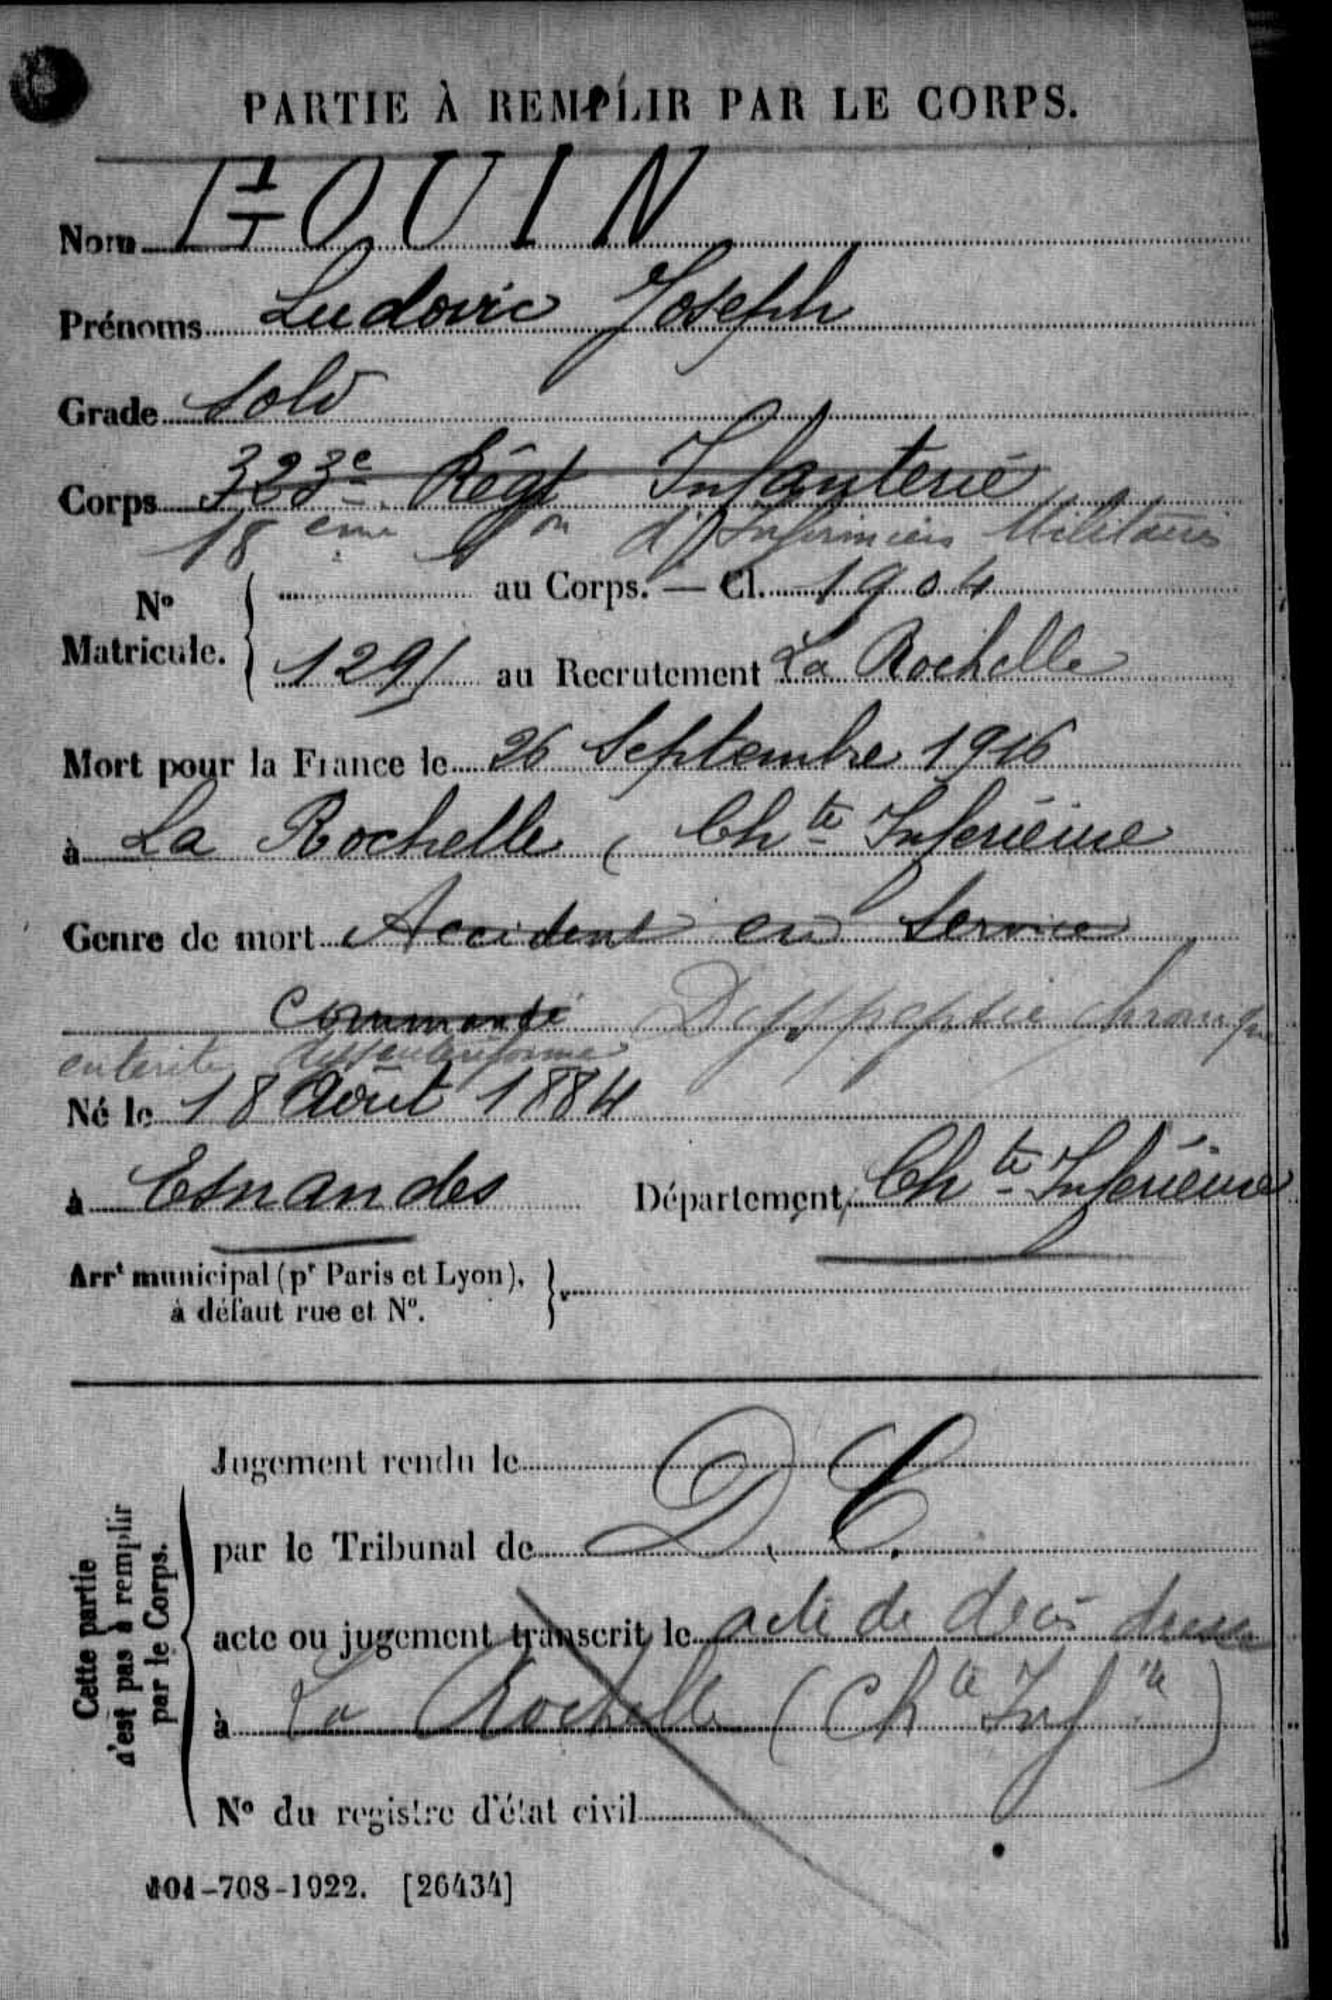 PARTIE À REMPLIR PAR LE CORPS.
Nom FOUIN
Prénoms Ludovic Joseph
Grade Sold
Corps 323e Régt Infanterie
18 eme Son d'Infirmiers Militaires
No Matricule. { au Corps. — Cl. 1904
1291 au Recrutement La Rochelle
Mort pour la France le 26 Septembre 1916
à La Rochelle ( Chte Inférieure
Genre de mort Accident en Service
Commandé Dyspepsie chronique
enterite dyssenteriforme
Né le 18 Août 1884
à Esnandes Département Chte Inférieure
Arrt municipal (pr Paris et Lyon),
à défaut rue et No. }
Cette partie
n'est pas à remplir
par le Corps.
Jugement rendu le
par le Tribunal de D. C.
acte ou jugement transcrit le acte de décès dressé
à La Rochelle (Chte Infre)
No du registre d'état civil
101-708-1922. [26434]